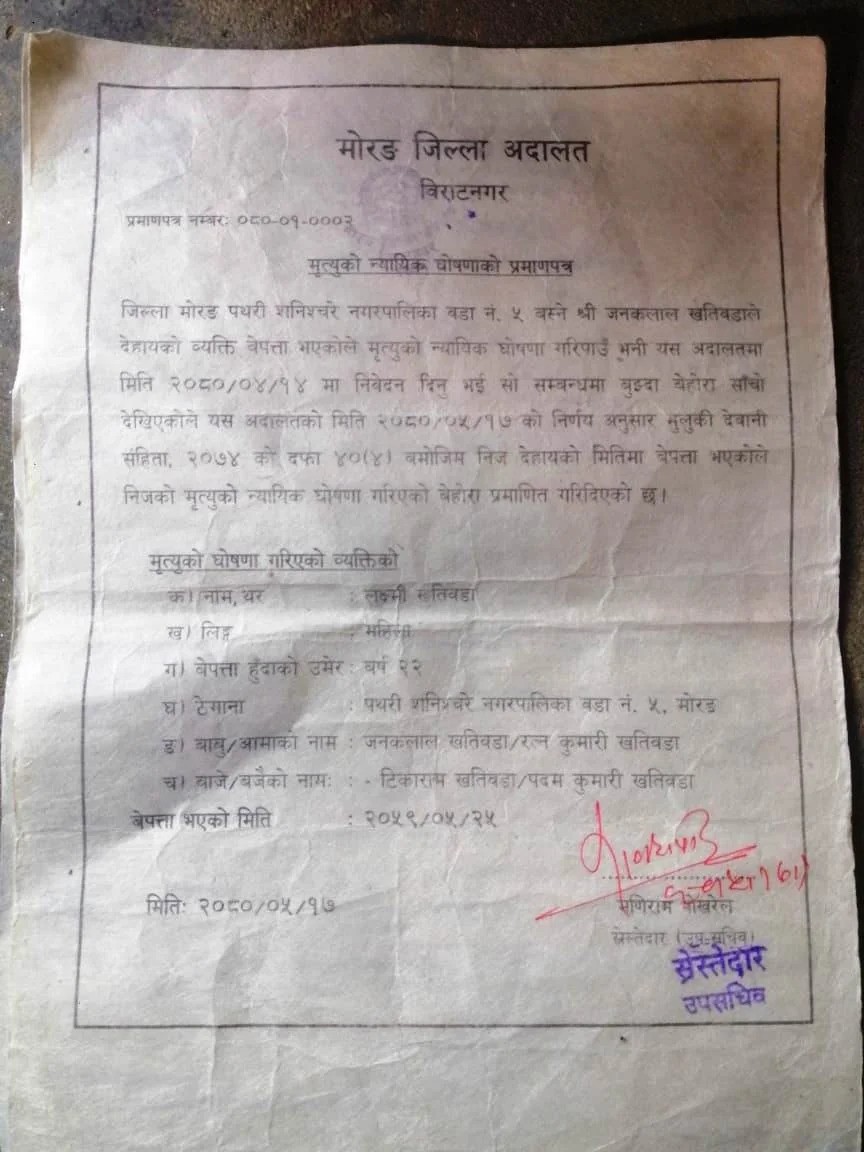 मोरङ जिल्ला अदालत
विराटनगर
प्रमाणपत्र नम्बरः ०८०-०१-०००२
मृत्युको न्यायिक घोषणाको प्रमाणपत्र
जिल्ला मोरङ पथरी शनिश्चरे नगरपालिका वडा नं. ५ बस्ने श्री जनकलाल खतिवडाले
देहायको व्यक्ति वेपत्ता भएकोले मृत्युको न्यायिक घोषणा गरिपाउँ भनी यस अदालतमा
मिति २०८०/०४/१४ मा निवेदन दिनु भई सो सम्बन्धमा बुझ्दा बेहोरा साँचो
देखिएकोले यस अदालतको मिति २०८०/०५/१७ को निर्णय अनुसार मुलुकी देवानी
संहिता, २०७४ को दफा ४०(४) बमोजिम निज देहायको मितिमा बेपत्ता भएकोले
निजको मृत्युको न्यायिक घोषणा गरिएको बेहोरा प्रमाणित गरिदिएको छ।
मृत्युको घोषणा गरिएको व्यक्तिको
क) नाम, थर : लक्ष्मी खतिवडा
ख) लिङ्ग : महिला
ग) बेपत्ता हुँदाको उमेर : वर्ष २२
घ) ठेगाना : पथरी शनिश्चरे नगरपालिका वडा नं. ५, मोरङ
ङ) बाबु/आमाको नाम : जनकलाल खतिवडा/रत्न कुमारी खतिवडा
च) बाजे/बजैको नामः : - टिकाराम खतिवडा/पदम कुमारी खतिवडा
बेपत्ता भएको मिति : २०५९/०५/२५
मितिः २०८०/०५/१७
मणिराम पोखरेल
स्रेस्तेदार (उप-सचिव)
स्रेस्तेदार
उपसचिव